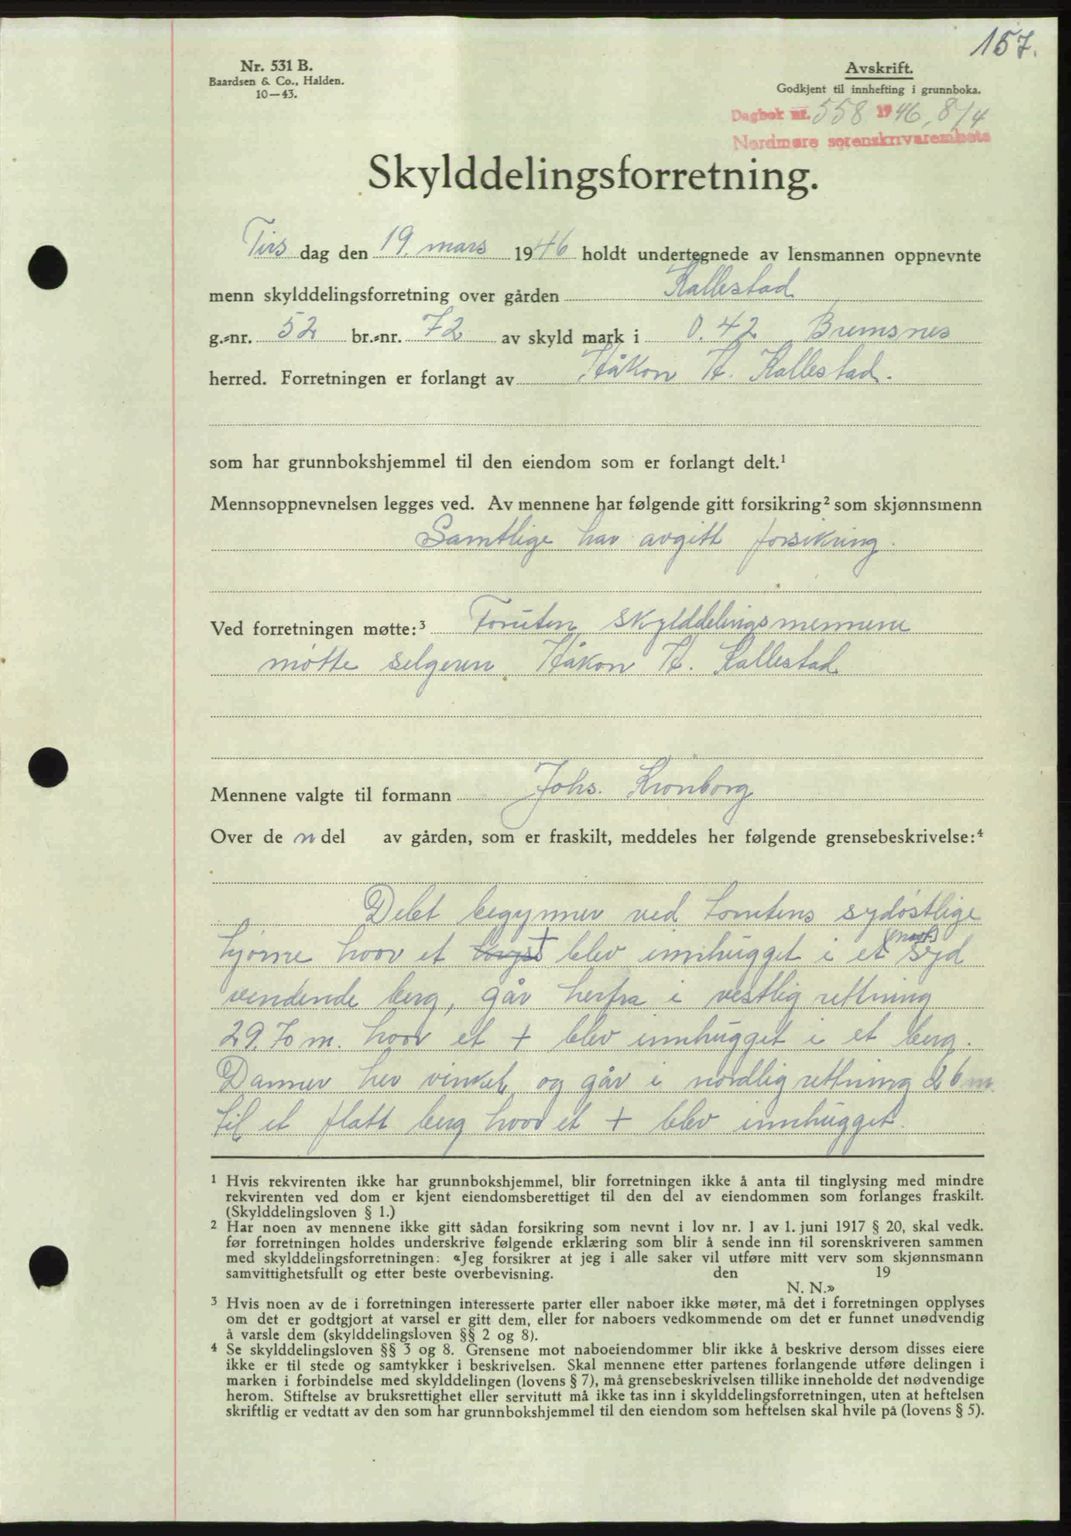 157.
Nr. 531 B.
Baardsen & Co., Halden.
10—43.
Avskrift.
Godkjent til innhefting i grunnboka.
Dagbok nr. 558 1946, 8/4
Nordmøre sorenskriverembete
Skylddelingsforretning.
Tirs dag den 19. mars 1946 holdt undertegnede av lensmannen oppnevnte
menn skylddelingsforretning over gården Kallestad
g.-nr. 52 br.-nr. 72 av skyld mark i 0.42 Bremsnes
herred. Forretningen er forlangt av Håkon H. Kallestad.
som har grunnbokshjemmel til den eiendom som er forlangt delt.¹
Mennsoppnevnelsen legges ved. Av mennene har følgende gitt forsikring² som skjønnsmenn
Samtlige har avgitt forsikring.
Ved forretningen møtte:³ Foruten skylddelingsmennene
møtte selgeren Håkon H. Kallestad
Mennene valgte til formann Johs. Kronborg
Over de n del av gården, som er fraskilt, meddeles her følgende grensebeskrivelse:⁴
Delet begynner ved tomtens sydøstlige
hjørne hvor et + blev innhugget i et syd
vendende berg, går herfra i vestlig rettning
29.70 m. hvor et + blev innhugget i et berg.
Danner her vinkel og går i nordlig rettning 26 m.
til et flatt berg hvor et + blev innhugget.
¹ Hvis rekvirenten ikke har grunnbokshjemmel, blir forretningen ikke å anta til tinglysing med mindre
rekvirenten ved dom er kjent eiendomsberettiget til den del av eiendommen som forlanges fraskilt.
(Skylddelingsloven § 1.)
² Har noen av mennene ikke gitt sådan forsikring som nevnt i lov nr. 1 av 1. juni 1917 § 20, skal vedk.
før forretningen holdes underskrive følgende erklæring som blir å sende inn til sorenskriveren sammen
med skylddelingsforretningen: «Jeg forsikrer at jeg i alle saker vil utføre mitt verv som skjønnsmann
samvittighetsfullt og etter beste overbevisning. den 19
N. N.»
³ Hvis noen av de i forretningen interesserte parter eller naboer ikke møter, må det i forretningen opplyses
om det er godtgjort at varsel er gitt dem, eller for naboers vedkommende om det er funnet unødvendig
å varsle dem (skylddelingsloven §§ 2 og 8).
⁴ Se skylddelingsloven §§ 3 og 8. Grensene mot naboeiendommer blir ikke å beskrive dersom disses eiere
ikke er til stede og samtykker i beskrivelsen. Skal mennene etter partenes forlangende utføre delingen i
marken i forbindelse med skylddelingen (lovens § 7), må grensebeskrivelsen tillike inneholde det nødvendige
herom. Stiftelse av bruksrettighet eller servitutt må ikke tas inn i skylddelingsforretningen, uten at heftelsen
skriftlig er vedtatt av den som har grunnbokshjemmel til den eiendom som heftelsen skal hvile på (lovens § 5).